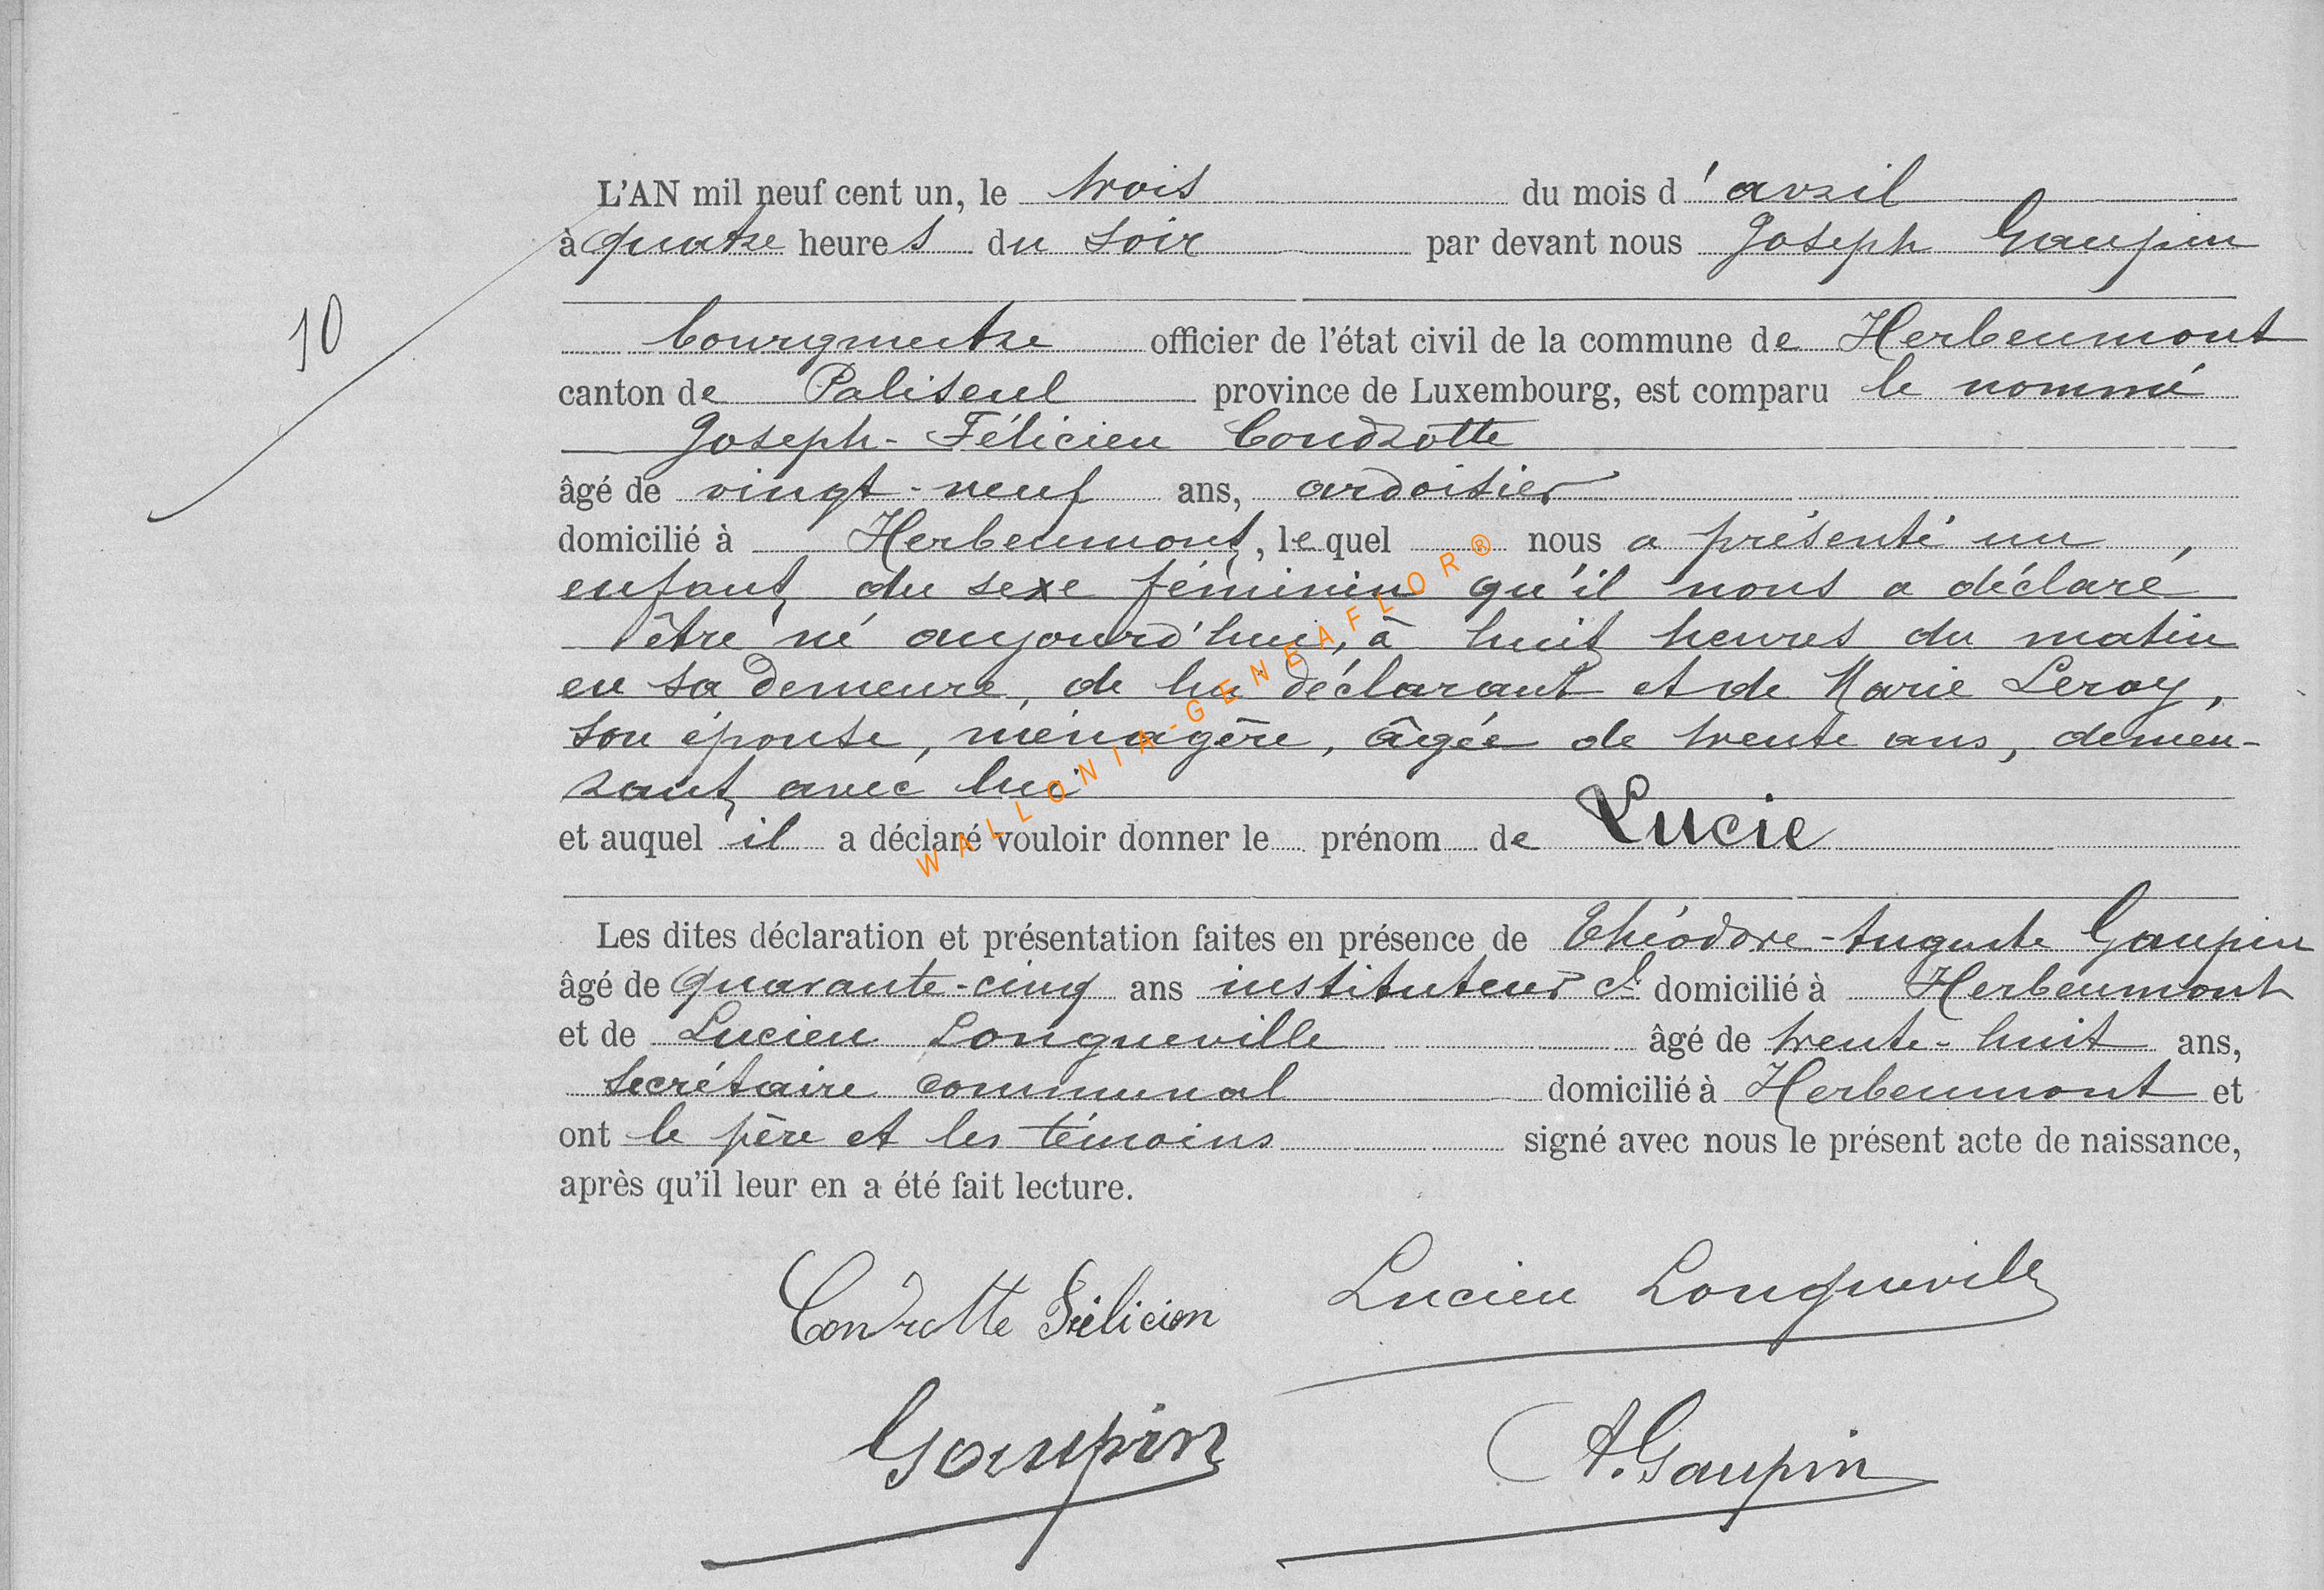 L'AN mil neuf cent un, le trois du mois d'avril
à quatre heures du soir par devant nous Joseph Gaupin
10
bourgmestre officier de l'état civil de la commune de Herbeumont
canton de Paliseul province de Luxembourg, est comparu le nommé
Joseph-Félicien Condrotte
âgé de vingt-neuf ans, ardoisier
domicilié à Herbeumont, lequel nous a présenté un
enfant du sexe féminin qu'il nous a déclaré
être né aujourd'hui, à huit heures du matin
en sa demeure, de lui déclarant et de Marie Leroy,
son épouse, ménagère, âgée de trente ans, demeu-
rant avec lui
et auquel il a déclaré vouloir donner le prénom de Lucie
WALLONIA-GENEAFLOR®
Les dites déclaration et présentation faites en présence de Théodore-Auguste Gaupin
âgé de quarante-cinq ans instituteur ct domicilié à Herbeumont
et de Lucien Longueville âgé de trente-huit ans,
secrétaire communal domicilié à Herbeumont et
ont le père et les témoins signé avec nous le présent acte de naissance,
après qu'il leur en a été fait lecture.
Condrotte Félicien Lucien Longueville
Gaupin A. Gaupin